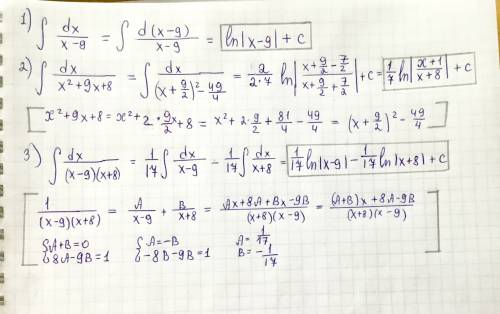 1) ∫ dx/(x-9) = ∫ d(x-9)/(x-9) = ln|x-9| + c
2) ∫ dx/(x²+9x+8) = ∫ dx/((x+9/2)²-49/4) = 2/(2·7) ln|(x+9/2-7/2)/(x+9/2+7/2)| + c = 1/7 ln|(x+1)/(x+8)| + c
[x²+9x+8 = x²+2·9/2x+8 = x²+2·9/2+81/4-49/4 = (x+9/2)²-49/4]
3) ∫ dx/((x-9)(x+8)) = 1/17 ∫ dx/(x-9) - 1/17 ∫ dx/(x+8) = 1/17 ln|x-9| - 1/17 ln|x+8| + c
[1/((x-9)(x+8)) = A/(x-9) + B/(x+8) = (Ax+8A+Bx-9B)/((x+8)(x-9)) = ((A+B)x+8A-9B)/((x+8)(x-9))
{A+B=0 {A=-B A=1/17
{8A-9B=1 {-8B-9B=1 B=-1/17]